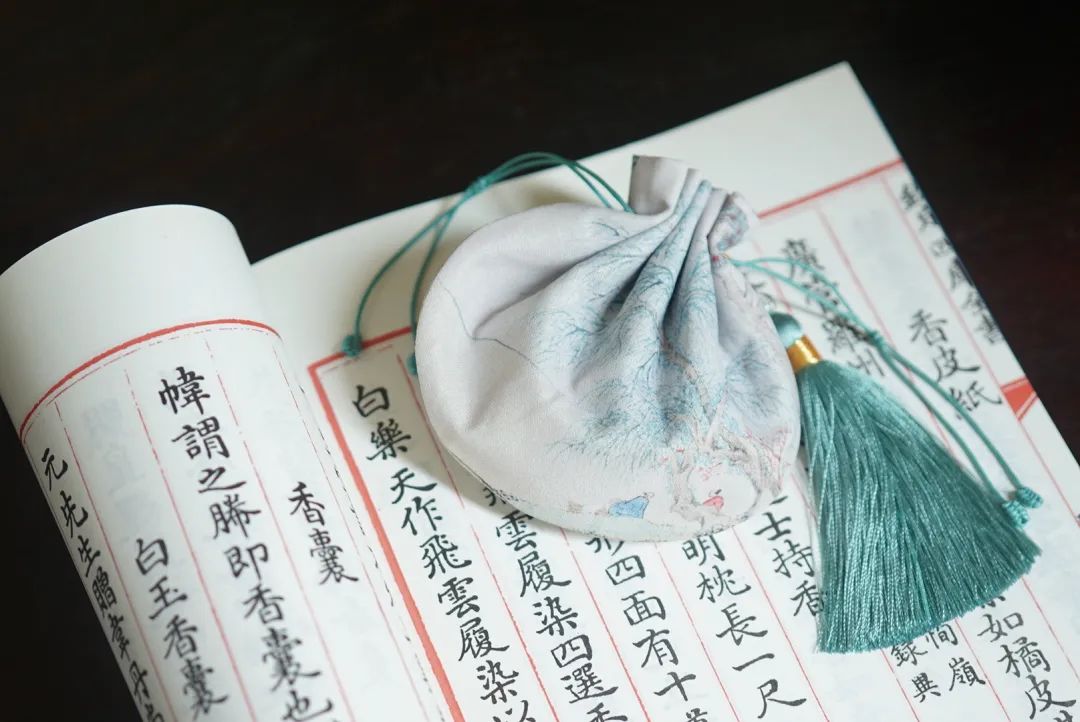 欽定四庫全書
香皮紙
廣羅州如橘皮
嶺
錄興
士持香
明枕長一尺
四面有十
飛雲履染四選香
白樂天作飛雲履染以
香囊
幃謂之幐即香囊也
白玉香囊
元先生贈韋丹尚